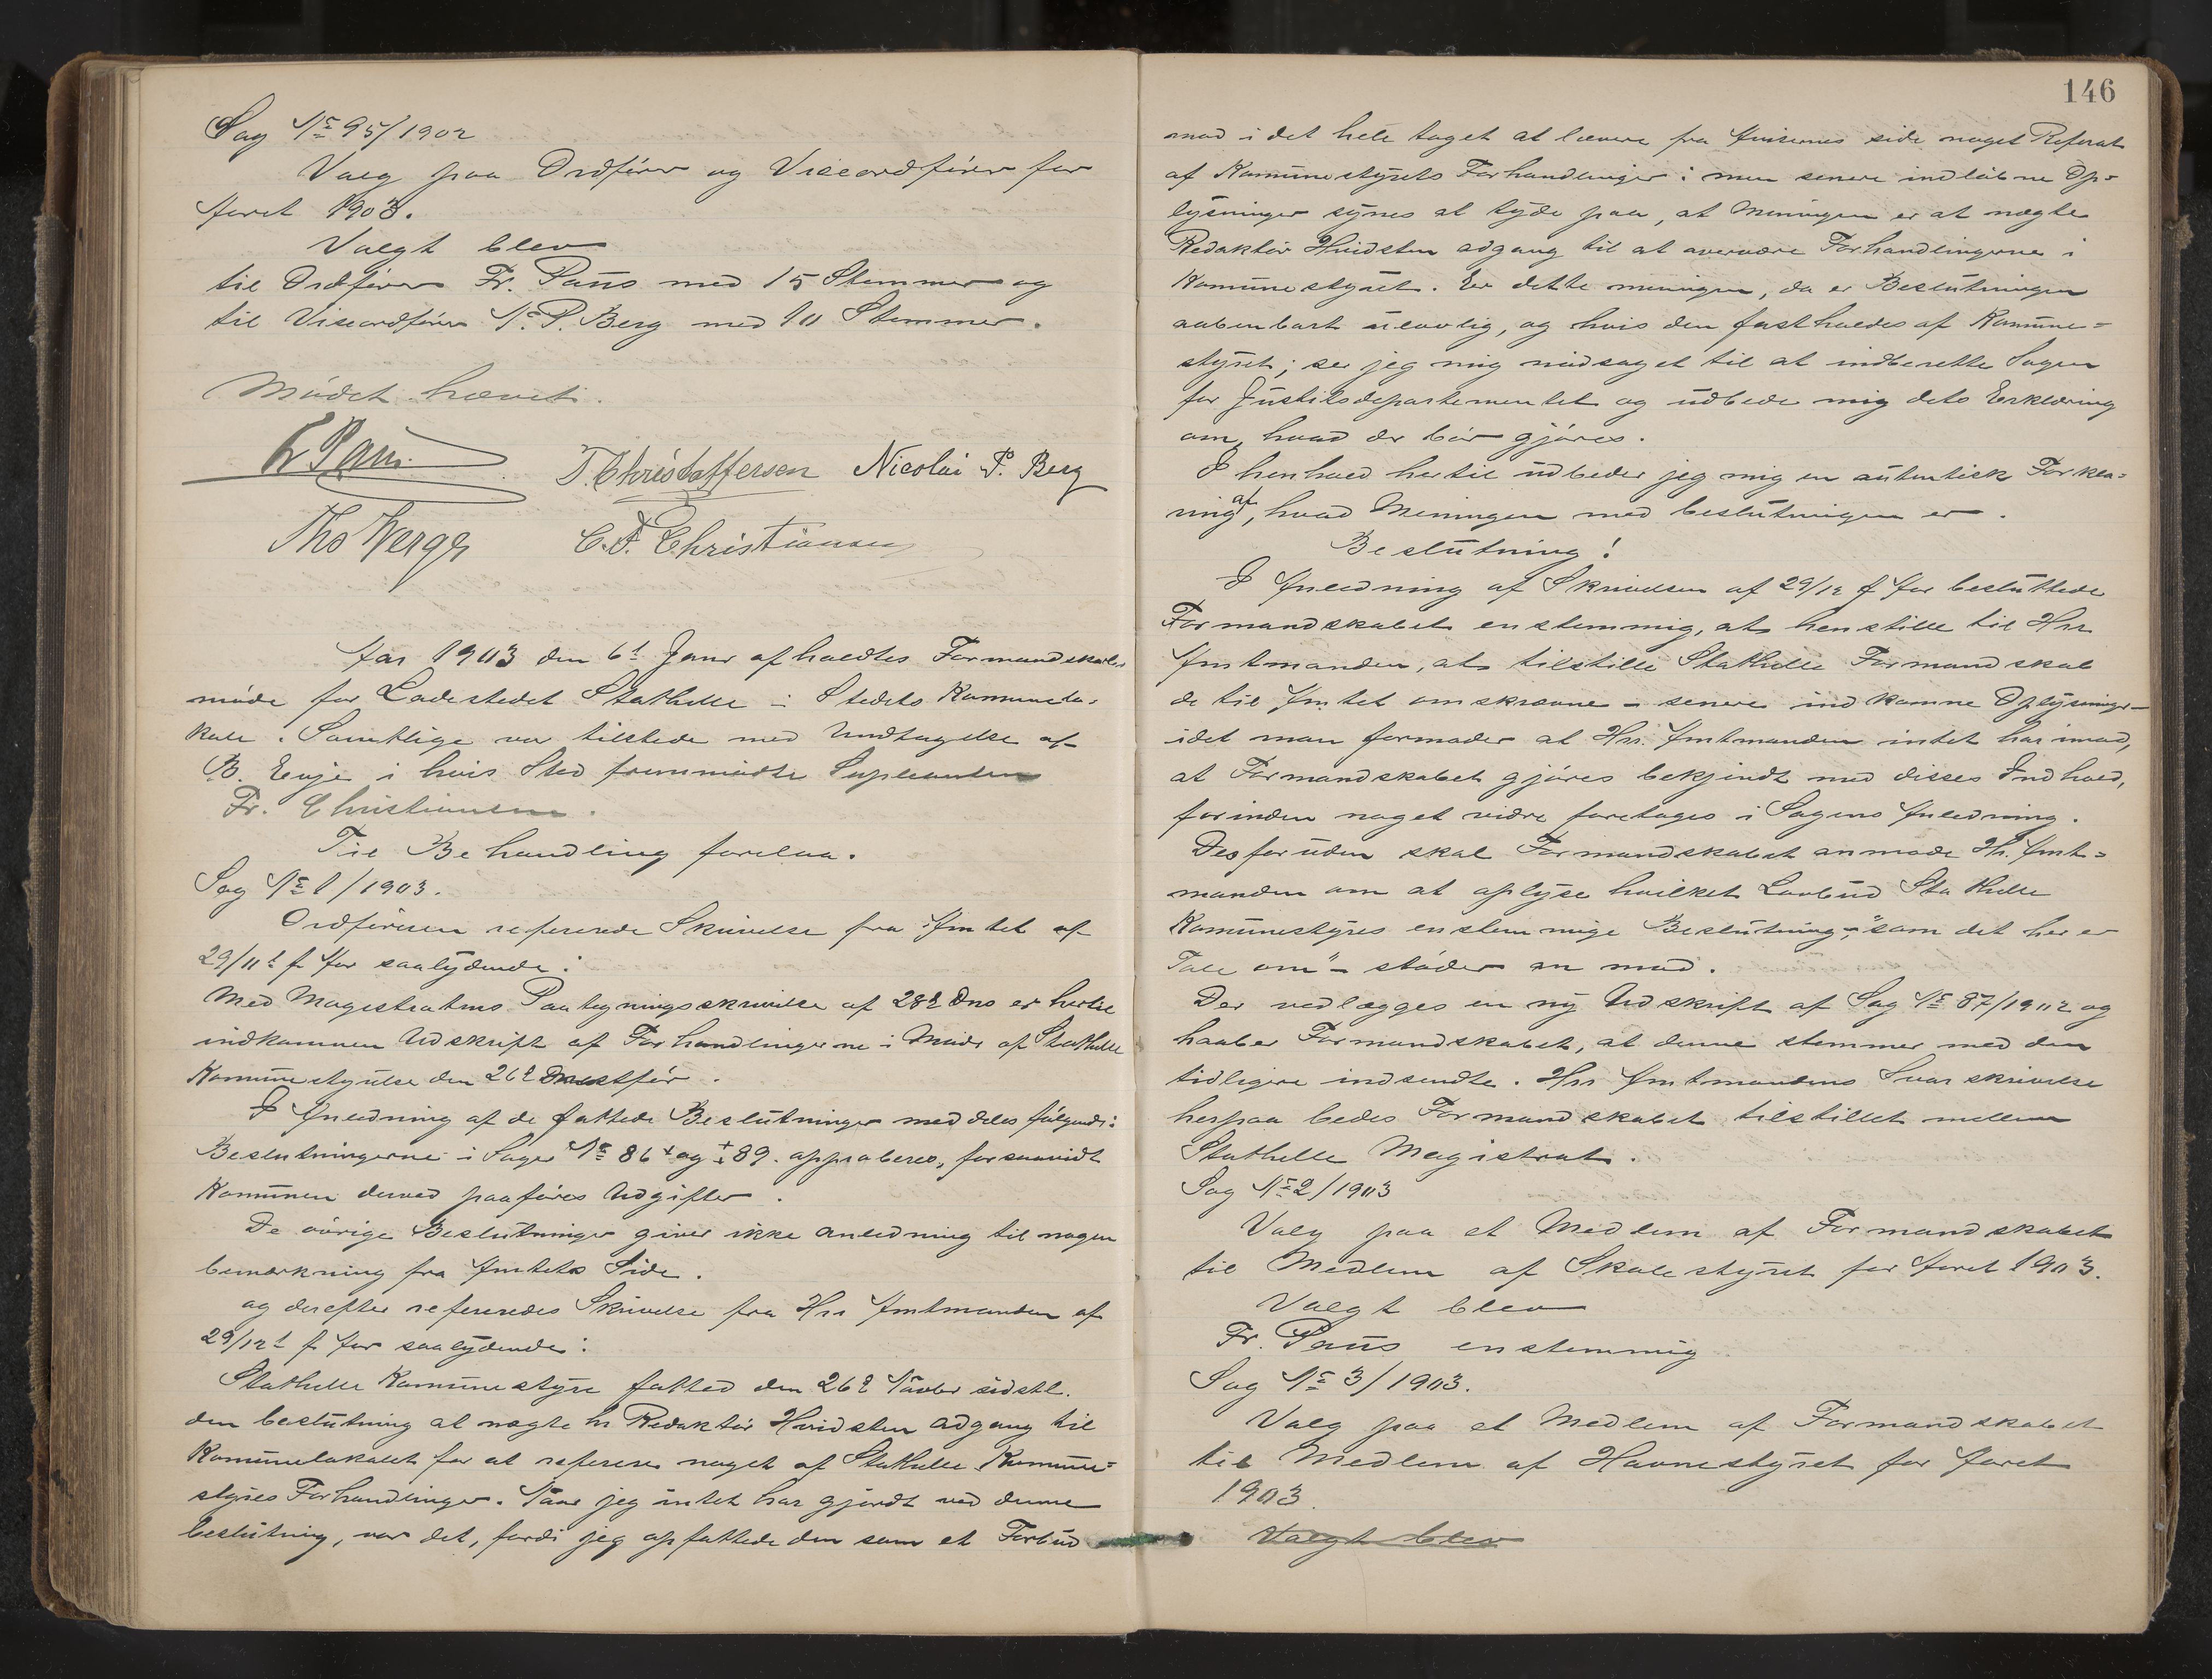 Sag No 95/1902
Valg paa Ordfører og Viseordfører for
Aaret 1903.
Valgt blev
til Ordfører Fr. Paus med 15 Stemmer og
til Viseordfører N. P. Berg med 10 Stemmer.
Mødet hævet.
Fr Paus
T. Christoffersen Nicolai P. Berg
C. F. Christiansen
Aar 1903 den 6t Janr afholdtes Formandskabs
møde for Ladestedet Stathelle i Stedets Kommunelo-
kale. Samtlige var tilstede med Undtagelse af
B. Eeg i hvis Sted fremmødte Supleanten
Fr. Christiansen.
Til Behandling forelaa.
Sag No 1/1903.
Ordføreren refererede Skrivelse fra Amtet af
29/11t f Aar saalydende:
Med Magistratens Paategningsskrivelse af 28d Dns er hertil
indkommen Udskrift af Forhandlingerne i Møde af Stathelle
Kommunestyrelse den 26d næstfør.
I Anledning af de fattede Beslutninger meddeles følgende:
Beslutningerne i Sager No 86 og 89. approberes, forsaavidt
Kommunen derved paaføres Udgifter.
De øvrige Beslutninger giver ikke anledning til nogen
bemærkning fra Amtets Side.
og derefter refereredes Skrivelse fra Hrr Amtmanden af
29/12t f Aar saalydende:
Stathelle Kommunestyre fatted den 26d Novbr sidstl.
den beslutning at nægte hr Redaktør Hvidsten adgang til
Kommunelokalet for at referere noget af Stathelle Kommune=
styres Forhandlinger. Naar jeg intet har gjordt ved denne
beslutning, var det, fordi jeg opfattede den som et Forbud
146
mod i det hele taget at levere fra Avisernes side noget Referat
af Kommunestyrets Forhandlinger: men senere indløbne Op=
lysninger synes at tyde paa, at Meningen er at nægte
Redaktør Hvidsten adgang til at overvære Forhandlingerne i
Kommunestyret. Er dette meningen, da er Beslutningen
aabenbart ulovlig, og hvis den fastholdes af Kommune=
styret; ser jeg mig nødsaget til at indberette Sagen
for Justitsdepartementet og udbede mig dets Erklæring
om, hvad der bør gjøres.
I henhold hertil udbeder jeg mig en autentisk Forkla=
ring af, hvad Meningen med beslutningen er.
Beslutning!
I Anledning af Skrivelsen af 29/12 f Aar besluttede
Formandskabet enstemmig, at henstille til Hrr
Amtmanden, at tilstille Stathelle Formandskab
de til Amtet omskrevne - senere indkomne Oplysninger -
idet man formoder at Hrr. Amtmanden intet har imod,
at Formandskabet gjøres bekjendt med disses Indhold,
forinden noget vidre foretages i Sagens Anledning.
Desforuden skal Formandskabet anmode Hr. Amt=
manden om at oplyse hvilket Lovbud Stathelle
Kommunestyres enstemmige Beslutning, "som det her er
Tale om" - støder an mod.
Der vedlægges en ny Udskrift af Sag No 87/1902 og
haaber Formandskabet, at denne stemmer med den
tidligere indsendte. Hrr Amtmandens Svarskrivelse
herpaa bedes Formandskabet tilstillet mellem
Stathelle Magistrat.
Sag No 2/1903
Valg paa et Medlem af Formandskabet
til Medlem af Skolestyret for Aaret 1903.
Valgt blev
Fr. Paus enstemmig
Sag No 3/1903.
Valg paa et Medlem af Formandskabet
til Medlem af Havnestyret for Aaret
1903.
Valgt blev